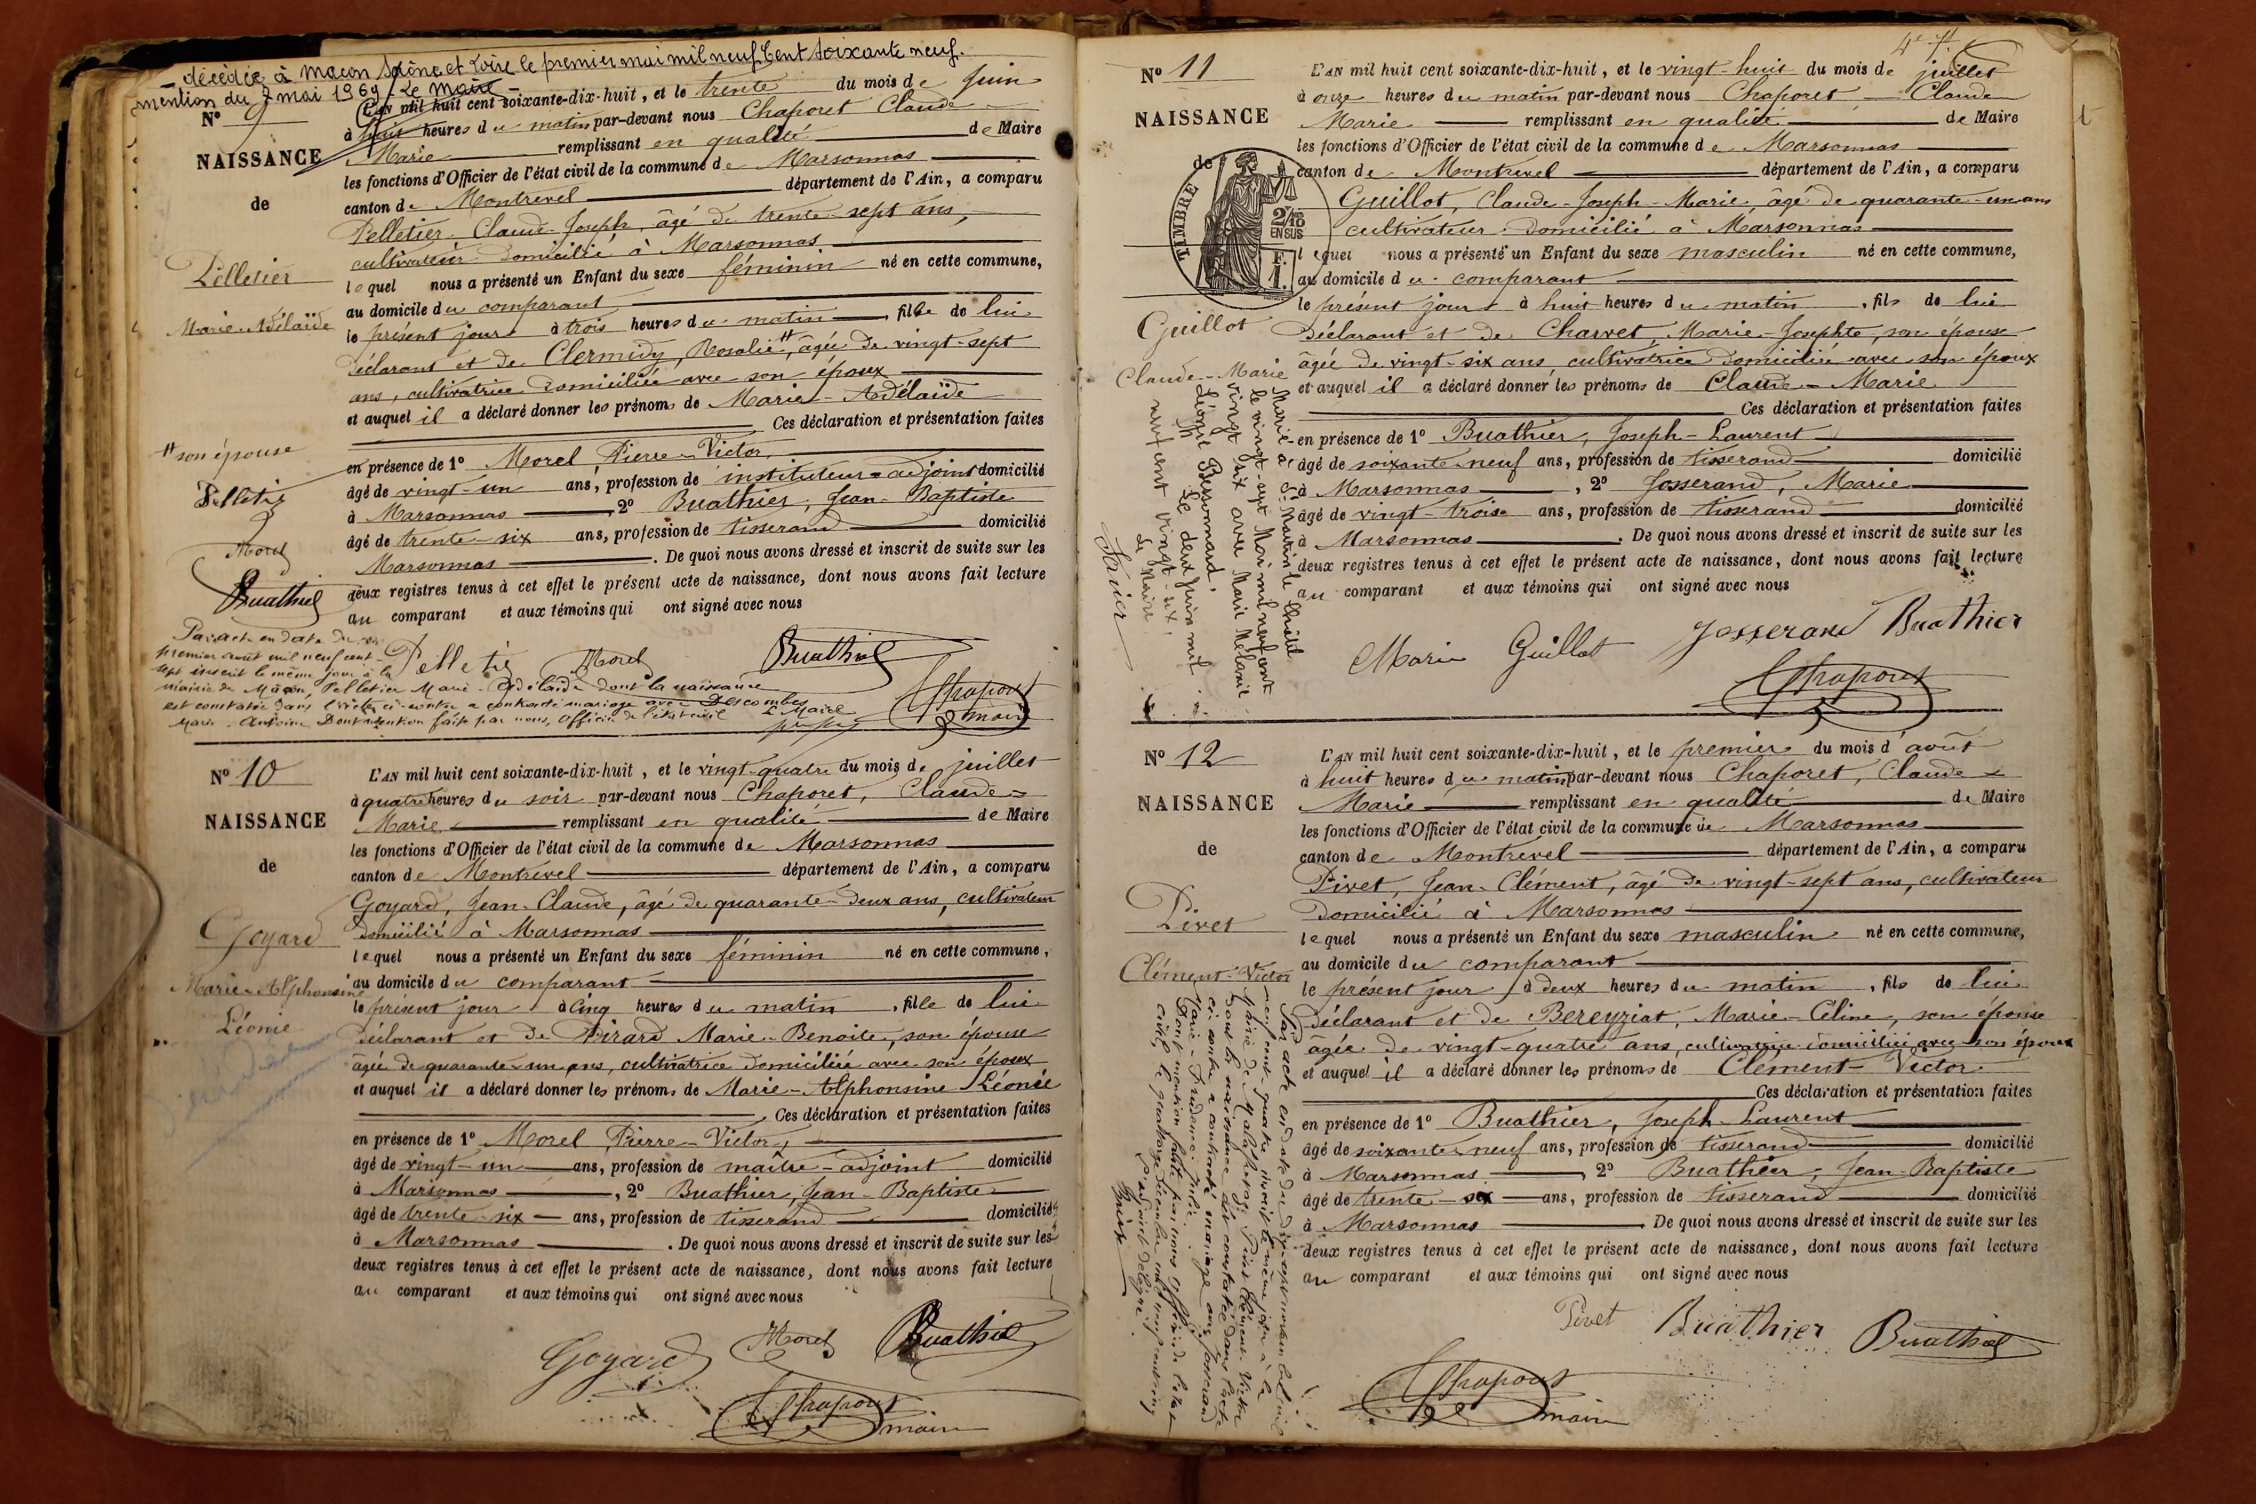 décédée à Macon Saône et Loire le premier mai mil neuf Cent soixante neuf.
mention du 7 mai 1969 Le Maire
N° 9
NAISSANCE
de
Pelletier
Marie-Adélaïde
L'AN mil huit cent soixante-dix-huit, et le trente du mois de Juin
à huit heures du matin par-devant nous Chaporet Claude
Marie remplissant en qualité de Maire
les fonctions d'Officier de l'état civil de la commune de Marsonnas
canton de Montrevel département de l'Ain, a comparu
Pelletier Claude-Joseph, âgé de trente-sept ans,
cultivateur domicilié à Marsonnas
lequel nous a présenté un Enfant du sexe féminin né en cette commune,
au domicile du comparant
le présent jour à trois heures du matin, fille de lui
déclarant et de Clermidy, Rosalie #, âgée de vingt-sept
ans, cultivatrice domiciliée avec son époux
et auquel il a déclaré donner les prénoms de Marie-Adélaïde
Ces déclaration et présentation faites
en présence de 1° Morel Pierre-Victor,
âgé de vingt-un ans, profession de instituteur-adjoint domicilié
à Marsonnas, 2° Buathier, Jean-Baptiste
âgé de trente-six ans, profession de tisserand domicilié
Marsonnas. De quoi nous avons dressé et inscrit de suite sur les
deux registres tenus à cet effet le présent acte de naissance, dont nous avons fait lecture
au comparant et aux témoins qui ont signé avec nous
# son épouse
Pelletier
Morel
Buathier
Pelletier Morel Buathier
Chaporet
maire
Par acte en date du
premier août mil neuf cent
sept inscrit le même jour à la
mairie de Mâcon, Pelletier Marie-Adélaïde dont la naissance
est constatée dans l'acte ci-contre a contracté mariage avec Descombes
Marie-Antoine Dont mention faite par nous, Officier de l'état civil
Le Maire
N° 10
NAISSANCE
de
Goyard
Marie-Alphonsine
Léonie
L'AN mil huit cent soixante-dix-huit, et le vingt-quatre du mois de juillet
à quatre heures du soir par-devant nous Chaporet, Claude
Marie remplissant en qualité de Maire
les fonctions d'Officier de l'état civil de la commune de Marsonnas
canton de Montrevel département de l'Ain, a comparu
Goyard, Jean-Claude, âgé de quarante-deux ans, cultivateur
domicilié à Marsonnas
lequel nous a présenté un Enfant du sexe féminin né en cette commune,
au domicile du comparant
le présent jour à cinq heures du matin, fille de lui
déclarant et de Pirard Marie-Benoite, son épouse
âgée de quarante-un ans, cultivatrice domiciliée avec son époux
et auquel il a déclaré donner les prénoms de Marie-Alphonsine Léonie
Ces déclaration et présentation faites
en présence de 1° Morel Pierre-Victor,
âgé de vingt-un ans, profession de maître-adjoint domicilié
à Marsonnas, 2° Buathier, Jean-Baptiste
âgé de trente-six ans, profession de tisserand domicilié
à Marsonnas. De quoi nous avons dressé et inscrit de suite sur les
deux registres tenus à cet effet le présent acte de naissance, dont nous avons fait lecture
au comparant et aux témoins qui ont signé avec nous
Goyard Morel Buathier
Chaporet
maire
N° 11
NAISSANCE
de
TIMBRE
2/10
EN SUS
F.
1.
Guillot
Claude-Marie
L'AN mil huit cent soixante-dix-huit, et le vingt-huit du mois de juillet
à onze heures du matin par-devant nous Chaporet Claude
Marie remplissant en qualité de Maire
les fonctions d'Officier de l'état civil de la commune de Marsonnas
canton de Montrevel département de l'Ain, a comparu
Guillot, Claude-Joseph-Marie, âgé de quarante-un ans
cultivateur domicilié à Marsonnas
lequel nous a présenté un Enfant du sexe masculin né en cette commune,
au domicile du comparant
le présent jour à huit heures du matin, fils de lui
déclarant et de Charvet, Marie-Josephte, son épouse
âgée de vingt-six ans, cultivatrice domiciliée avec son époux
et auquel il a déclaré donner les prénoms de Claude-Marie
Ces déclaration et présentation faites
en présence de 1° Buathier, Joseph-Laurent
âgé de soixante-neuf ans, profession de tisserand domicilié
à Marsonnas, 2° Josserand, Marie
âgé de vingt-trois ans, profession de tisserand domicilié
à Marsonnas. De quoi nous avons dressé et inscrit de suite sur les
deux registres tenus à cet effet le présent acte de naissance, dont nous avons fait lecture
au comparant et aux témoins qui ont signé avec nous
Marie Guillot Josserand Buathier
Chaporet
Marié à St Martin le Châtel
le vingt-sept Mai mil neuf cent
vingt six avec Marie Mélanie
Léonie Bessonnard.
Le deux Juin mil
neuf cent vingt-six,
Le Maire
N° 12
NAISSANCE
de
Pivet
Clément-Victor
L'AN mil huit cent soixante-dix-huit, et le premier du mois d'août
à huit heures du matin par-devant nous Chaporet, Claude
Marie remplissant en qualité de Maire
les fonctions d'Officier de l'état civil de la commune de Marsonnas
canton de Montrevel département de l'Ain, a comparu
Pivet, Jean-Clément, âgé de vingt-sept ans, cultivateur
domicilié à Marsonnas
lequel nous a présenté un Enfant du sexe masculin né en cette commune,
au domicile du comparant
le présent jour à deux heures du matin, fils de lui
déclarant et de Bereyziat, Marie-Céline, son épouse
âgée de vingt-quatre ans, cultivatrice domiciliée avec son époux
et auquel il a déclaré donner les prénoms de Clément-Victor
Ces déclaration et présentation faites
en présence de 1° Buathier, Joseph-Laurent
âgé de soixante-neuf ans, profession de tisserand domicilié
à Marsonnas, 2° Buathier, Jean-Baptiste
âgé de trente-six ans, profession de tisserand domicilié
à Marsonnas. De quoi nous avons dressé et inscrit de suite sur les
deux registres tenus à cet effet le présent acte de naissance, dont nous avons fait lecture
au comparant et aux témoins qui ont signé avec nous
Pivet Buathier Buathier
Chaporet
maire
Par acte en date du dix-sept
neuf cent quatre inscrit le même jour à la
Mairie de Pivet Clément-Victor
dont la naissance est constatée dans l'acte
ci-contre a contracté mariage avec Josserand
Marie-
Dont mention faite par nous officier de l'état
civil